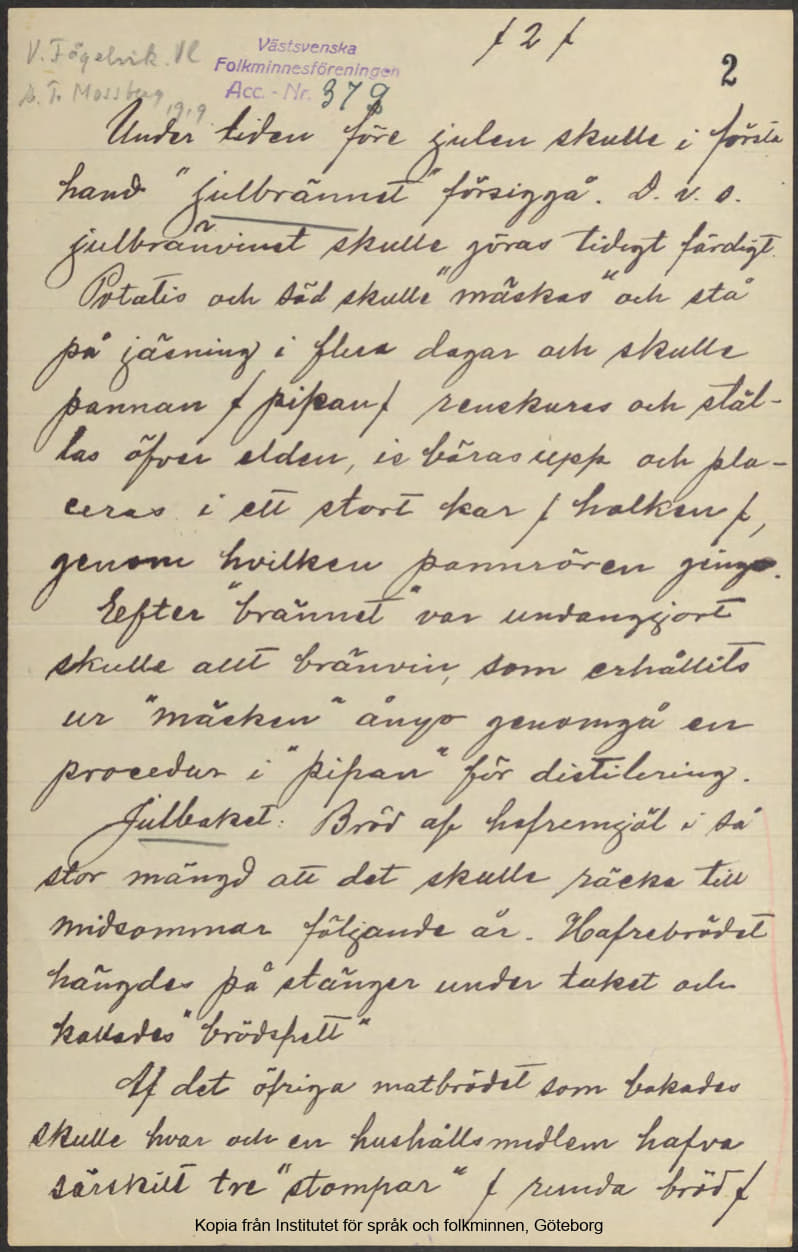 / 2 /
V. Fågelvik. Vl
Västsvenska
Folkminnesföreningen
Acc. - Nr. 379
2
A. T. Mossberg
1919
Under tiden före julen skulle i första
hand "julbrännet" försiggå. D. v. s.
julbränvinet skulle göras tidigt färdigt.
Potatis och säd skulle "mäskas" och stå
på jäsning i flera dagar och skulle
pannan / pipan / renskuras och stäl-
las öfver elden, is bäras upp och pla-
ceras i ett stort kar / holken /,
genom hvilken pannrören gingo.
Eefter "brännet" var undangjort
skulle allt bränvin, som erhållits
ur "mäsken" ånyo genomgå en
procedur i "pipan" för distilering.
Julbaket: Bröd af hafremjöl i så
stor mängd att det skulle räcka till
midsommar följande år. Hafrebrödet
hängdes på stänger under taket och
kallades "brödspett"
Af det öfriga matbrödet som bakades
skulle hvar och en hushållsmedlem hafva
särskilt tre "stompar" / runda bröd /
Kopia från Institutet för språk och folkminnen, Göteborg